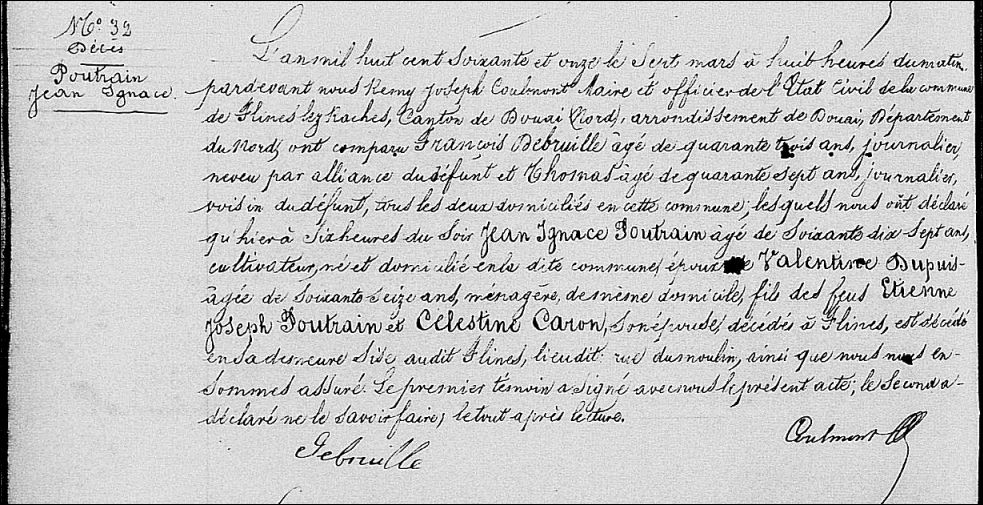 N° 32
Décès
Poutrain
Jean Ignace.
L'an mil huit cent soixante et onze le Sept mars à huit heures du matin
pardevant nous Remy Joseph Coulmont Maire et officier de l'État Civil de la commune
de Flines lez Raches, Canton de Douai (Nord), arrondissement de Douai, Département
du Nord, ont comparu François Debruille âgé de quarante trois ans, journalier,
neveu par alliance du défunt et Thomas âgé de quarante sept ans, journalier,
voisin du défunt, tous les deux domiciliés en cette commune; lesquels nous ont déclaré
qu'hier à Six heures du Soir Jean Ignace Poutrain âgé de Soixante dix Sept ans,
cultivateur, né et domicilié en la dite commune, époux de Valentine Dupuis
âgée de Soixante Seize ans, ménagère, de même domicile, fils des feus Etienne
Joseph Poutrain et Célestine Caron, son épouse, décédés à Flines, est décédé
en sa demeure Sise audit Flines, lieudit: rue du moulin, ainsi que nous nous en-
Sommes assuré. Le premier témoin a Signé avec nous le présent acte; le Second a-
déclaré ne le Savoir faire; le tout après lecture.
Debruille
Coulmont